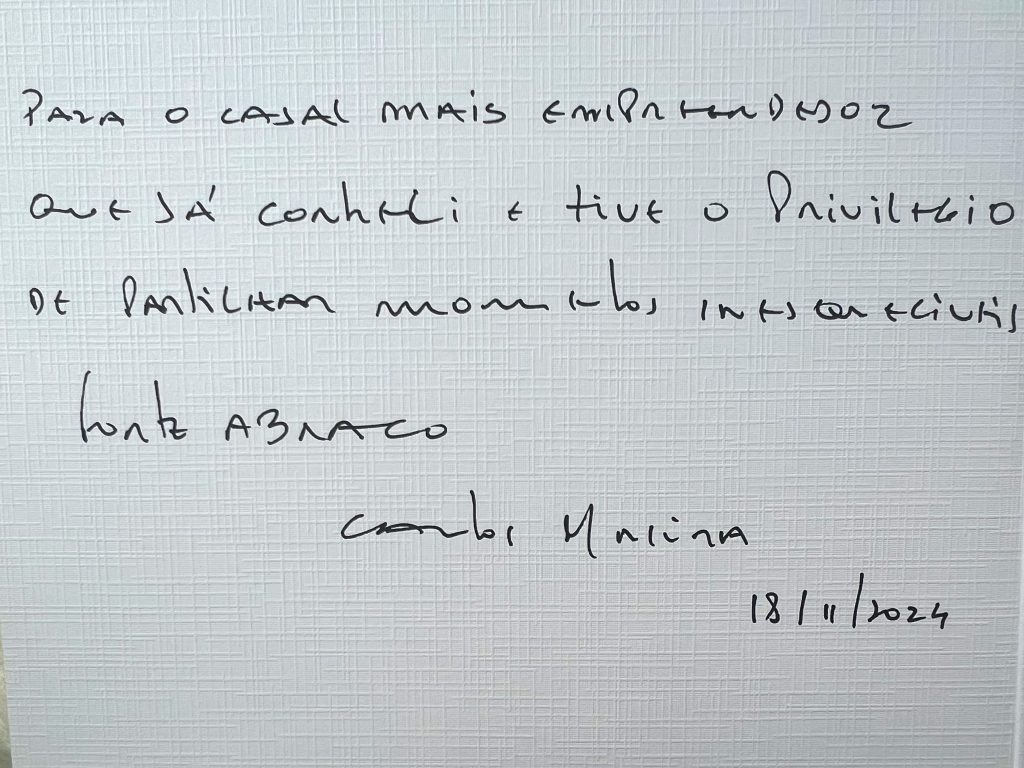 PARA O CASAL MAIS EMPREENDEDOR
QUE JÁ CONHECI E TIVE O PRIVILEGIO
DE PARTILHAR MOMENTOS INESQUECIVEIS
FORTE ABRACO
CARLOS
18/11/2024